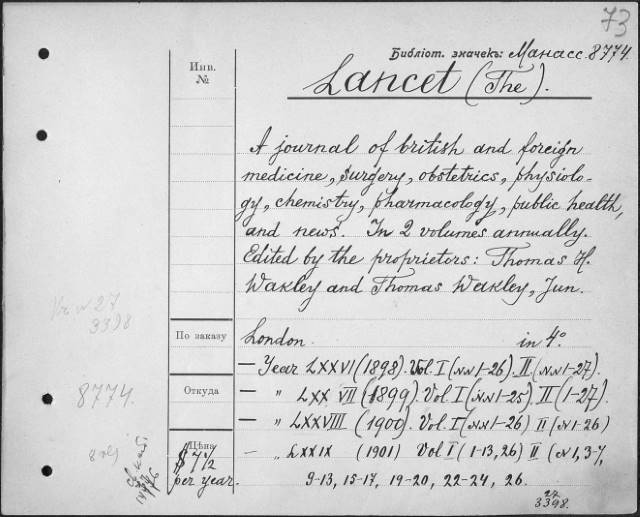 73
Библіот. значекъ: Манасс. 8774.
Инв. №
Lancet (The).
A journal of british and foreign
medicine, surgery, obstetrics, physiolo-
gy, chemistry, pharmacology, public health,
and news. In 2 volumes annually.
Edited by the proprietors: Thomas H.
Wakley and Thomas Wakley, Jun.
27
3398
По заказу
London. in 4º
— Year LXXVI (1898). Vol. I (NN 1-26). II (NN 1-27).
Откуда
— " LXXVII (1899). Vol. I (NN 1-25). II (1-27).
8774.
— " LXXVIII (1900). Vol. I (NN 1-26) II (N 1-26)
Цѣна
— " LXXIX (1901) Vol I (1-13, 26) II (N 1, 3-7,
$ 7½
per year.
9-13, 15-17, 19-20, 22-24, 26.
27
3398.